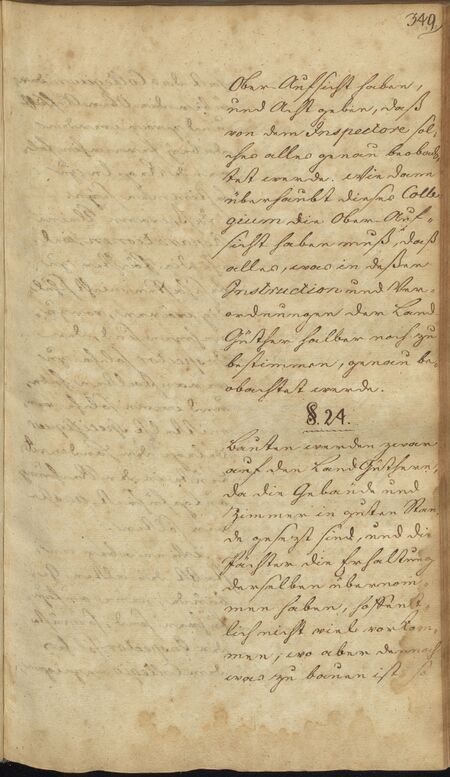 349.
Ober-Aufsicht haben,
und Acht geben, daß
von dem Inspectore sol,
ches alles genau beobach,
tet werde. Wie dann
überhaubt dieses Colle,
gium die Ober-Auf,
sicht haben muß, daß
alles, was in deßen
Instruction und Ver,
ordnungen der Land
Güther halber noch zu
bestimmen, genau be,
obachtet werde.
§. 24.
Bauten werden zwar
auf den Land Güthern,
da die Gebäude und
Zimmer in guten Stan,
de gesezt sind, und die
Pächter die Erhaltung
derselben übernom,
men haben, hoffent,
lich nicht viel vorkom,
men, wo aber dennoch
was zu bauen ist so